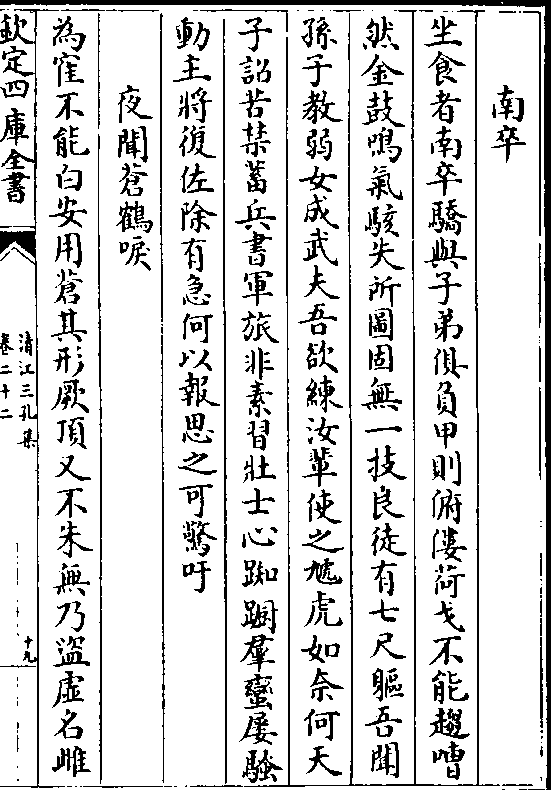 南卒
坐食者南卒驕與子弟俱負甲則俯僂荷戈不能趨嘈
然金鼓鳴氣駭失所圖固無一技良徒有七尺軀吾聞
孫子教弱女成武夫吾欲練汝輩使之虓虎如奈何天
子詔苦禁蓄兵書軍旅非素習壯士心踟躕羣蠻屢騷
動主將復佐除有急何以報思之可驚吁
夜聞蒼鶴唳
為寉不能白安用蒼其形厥頂又不朱無乃盜虛名雌
欽定四庫全書
清江三孔集
卷二十二
十九